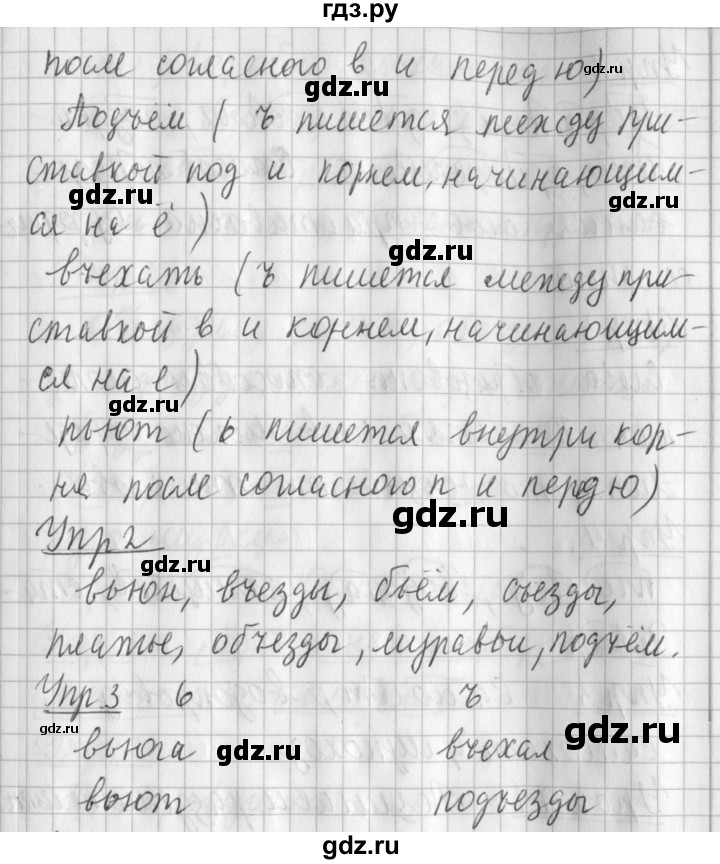 гдз.ру
после согласного в и перед ю)
gdz.ru
gdz.ru
Подъём (ъ пишется между при-
ставкой под и корнем, начинающим-
gdz.ru
gdz.ru
ся на ё)
gdz.ru
въехать (ъ пишется между при-
ставкой в и корнем, начинающим-
ся на е)
gdz.ru
пьют (ь пишется внутри кор-
ня после согласного п и перед ю)
gdz.ru
Упр 2
gdz.ru
вьюн, въезды, бьём, съезды,
платье, объезды, муравьи, подъём.
Упр.3 ь ъ
gdz.ru
вьюга въехал
gdz.ru
gdz.ru
вьют подъезды
gdz.ru